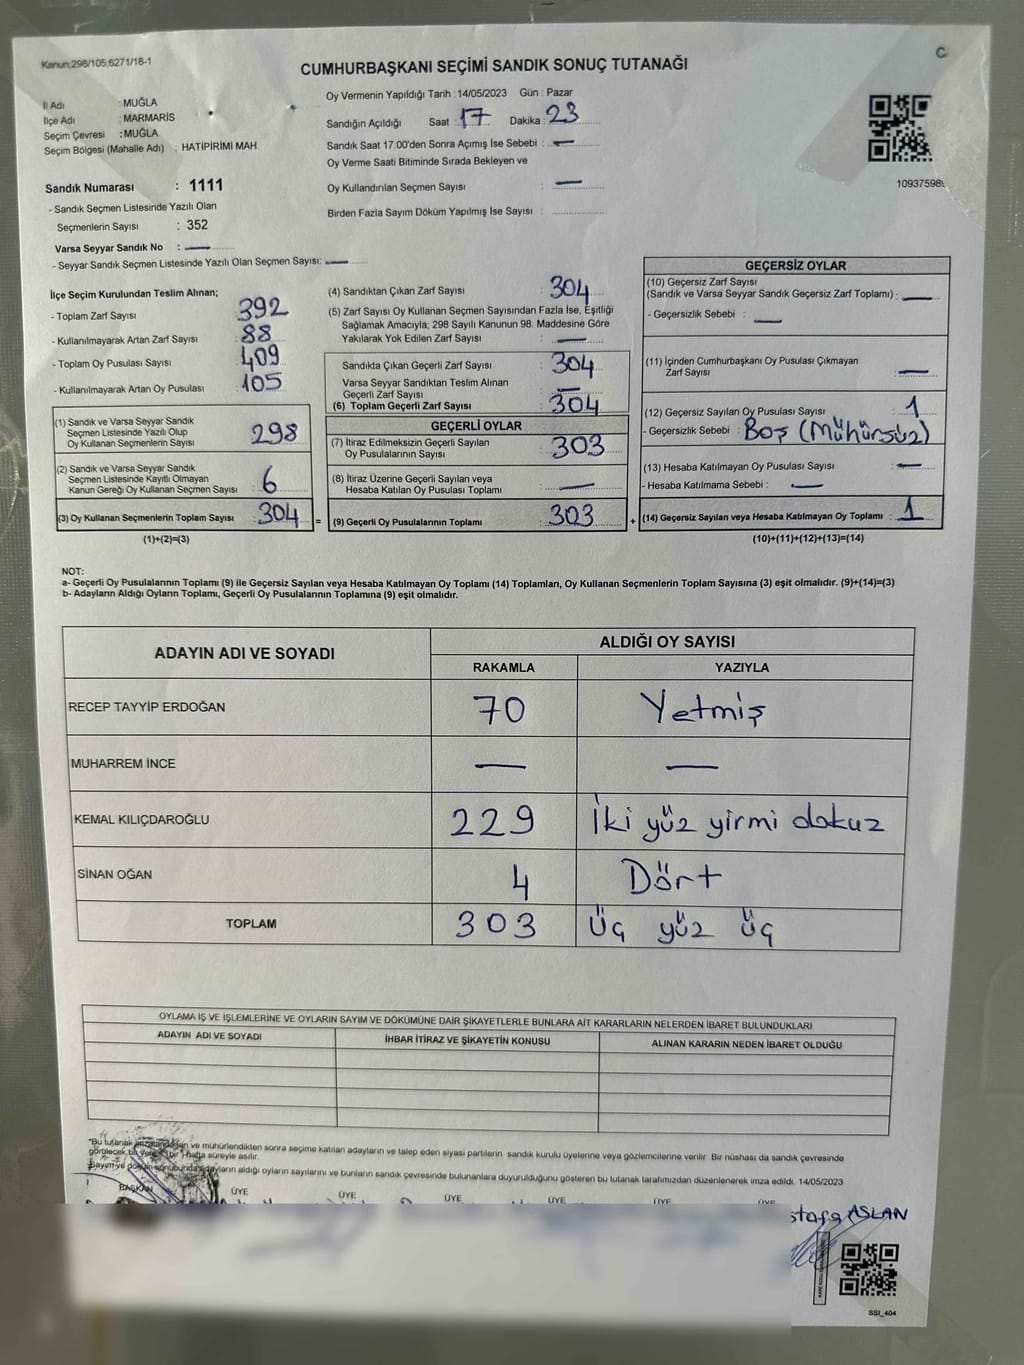 Kanun;298/105;6271/18-1
C
CUMHURBAŞKANI SEÇİMİ SANDIK SONUÇ TUTANAĞI
İl Adı : MUĞLA
İlçe Adı : MARMARİS
Seçim Çevresi : MUĞLA
Seçim Bölgesi (Mahalle Adı) : HATİPİRİMİ MAH.
Sandık Numarası : 1111
- Sandık Seçmen Listesinde Yazılı Olan
Seçmenlerin Sayısı : 352
Varsa Seyyar Sandık No : —
- Seyyar Sandık Seçmen Listesinde Yazılı Olan Seçmen Sayısı: —
Oy Vermenin Yapıldığı Tarih : 14/05/2023 Gün : Pazar
Sandığın Açıldığı Saat : 17 Dakika : 23
Sandık Saat 17.00'den Sonra Açımış İse Sebebi : —
Oy Verme Saati Bitiminde Sırada Bekleyen ve
Oy Kullandırılan Seçmen Sayısı : —
Birden Fazla Sayım Döküm Yapılmış İse Sayısı :
İlçe Seçim Kurulundan Teslim Alınan;
- Toplam Zarf Sayısı : 392
- Kullanılmayarak Artan Zarf Sayısı : 88
- Toplam Oy Pusulası Sayısı : 409
- Kullanılmayarak Artan Oy Pusulası : 105
(1) Sandık ve Varsa Seyyar Sandık
Seçmen Listesinde Yazılı Olup
Oy Kullanan Seçmenlerin Sayısı : 298
(2) Sandık ve Varsa Seyyar Sandık
Seçmen Listesinde Kayıtlı Olmayan
Kanun Gereği Oy Kullanan Seçmen Sayısı : 6
(3) Oy Kullanan Seçmenlerin Toplam Sayısı : 304
(1)+(2)=(3)
(4) Sandıktan Çıkan Zarf Sayısı : 304
(5) Zarf Sayısı Oy Kullanan Seçmen Sayısından Fazla İse, Eşitliği
Sağlamak Amacıyla; 298 Sayılı Kanunun 98. Maddesine Göre
Yakılarak Yok Edilen Zarf Sayısı : —
Sandıkta Çıkan Geçerli Zarf Sayısı : 304
Varsa Seyyar Sandıktan Teslim Alınan
Geçerli Zarf Sayısı : —
(6) Toplam Geçerli Zarf Sayısı : 304
GEÇERLİ OYLAR
(7) İtiraz Edilmeksizin Geçerli Sayılan
Oy Pusulalarının Sayısı : 303
(8) İtiraz Üzerine Geçerli Sayılan veya
Hesaba Katılan Oy Pusulası Toplamı : —
= (9) Geçerli Oy Pusulalarının Toplamı : 303
GEÇERSİZ OYLAR
(10) Geçersiz Zarf Sayısı
(Sandık ve Varsa Seyyar Sandık Geçersiz Zarf Toplamı) : —
- Geçersizlik Sebebi : —
(11) İçinden Cumhurbaşkanı Oy Pusulası Çıkmayan
Zarf Sayısı : —
(12) Geçersiz Sayılan Oy Pusulası Sayısı : 1
- Geçersizlik Sebebi : Boş (Mühürsüz)
(13) Hesaba Katılmayan Oy Pusulası Sayısı : —
- Hesaba Katılmama Sebebi : —
+ (14) Geçersiz Sayılan veya Hesaba Katılmayan Oy Toplamı : 1
(10)+(11)+(12)+(13)=(14)
NOT:
a- Geçerli Oy Pusulalarının Toplamı (9) ile Geçersiz Sayılan veya Hesaba Katılmayan Oy Toplamı (14) Toplamları, Oy Kullanan Seçmenlerin Toplam Sayısına (3) eşit olmalıdır. (9)+(14)=(3)
b- Adayların Aldığı Oyların Toplamı, Geçerli Oy Pusulalarının Toplamına (9) eşit olmalıdır.
ADAYIN ADI VE SOYADI
ALDIĞI OY SAYISI
RAKAMLA YAZIYLA
RECEP TAYYİP ERDOĞAN 70 Yetmiş
MUHARREM İNCE — —
KEMAL KILIÇDAROĞLU 229 İki yüz yirmi dokuz
SİNAN OĞAN 4 Dört
TOPLAM 303 Üç yüz üç
OYLAMA İŞ VE İŞLEMLERİNE VE OYLARIN SAYIM VE DÖKÜMÜNE DAİR ŞİKAYETLERLE BUNLARA AİT KARARLARIN NELERDEN İBARET BULUNDUKLARI
ADAYIN ADI VE SOYADI İHBAR İTİRAZ VE ŞİKAYETİN KONUSU ALINAN KARARIN NEDEN İBARET OLDUĞU
*Bu tutanak ve mühürlendikten sonra seçime katılan adayların ve talep eden siyasi partilerin sandık kurulu üyelerine veya gözlemcilerine verilir. Bir nüshası da sandık çevresinde
görülecek bir hafta süreyle asılır.
Sayım ve döküm aldığı oyların sayılarını ve bunların sandık çevresinde bulunanlara duyurulduğunu gösteren bu tutanak tarafımızdan düzenlenerek imza edildi. 14/05/2023
BAŞKAN ÜYE ÜYE ÜYE ÜYE ÜYE ÜYE
ASLAN
SSI_404